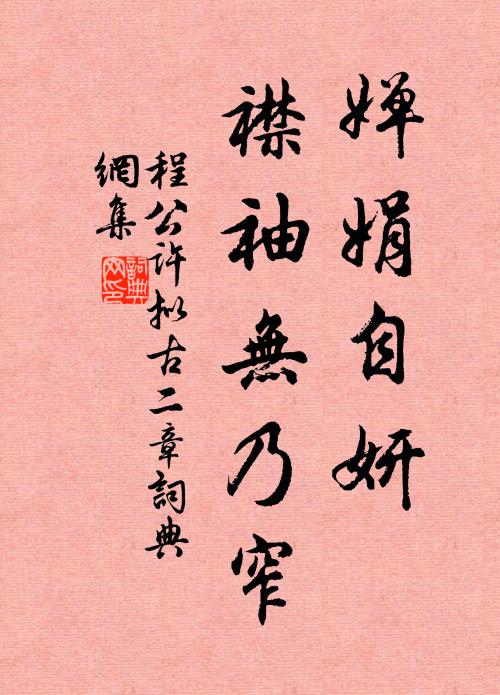 嬋娟自妍
襟袖無乃窄
程公许拟古二章詞典
網集
詞典
网印